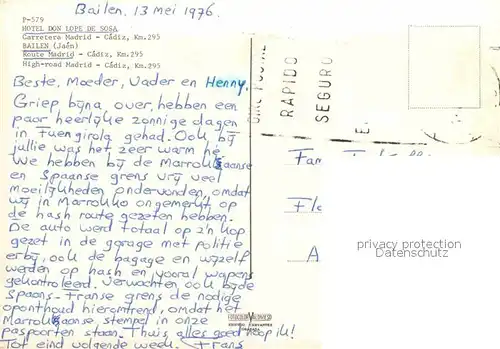 Bailen, 13 mei 1976.
P-579
HOTEL DON LOPE DE SOSA
Carretera Madrid - Cádiz, Km.295
BAILEN (Jaén)
Route Madrid - Cádiz, Km.295
High-road Madrid - Cádiz, Km.295
Beste, Moeder, Vader en Henny.
Griep bijna over, hebben een
paar heerlijke zonnige dagen
in Fuengirola gehad. Ook bij
jullie was het zeer warm hè
We hebben bij de Marrokaanse
en Spaanse grens vrij veel
moeilijkheden ondervonden, omdat
wij in Marrokko ongemerkt op
de hash route gezeten hebben.
De auto werd totaal op z'n kop
gezet in de garage met politie
erbij, ook de bagage en wijzelf
werden op hash en vooral wapens
gekontroleerd. Verwachten ook bij de
Spaans-Franse grens de nodige
oponthoud hieromtrend, omdat het
Marrokaanse stempel in onze
paspoorten staan. Thuis alles goed hoop ik!
Tot eind volgende week. Frans
RAPIDO
SEGURO
E
Fam
F
A
privacy protection
Datenschutz